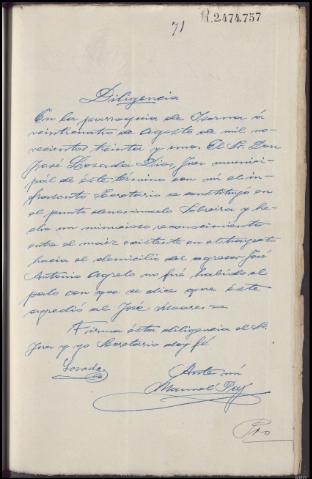 71
R.2474,757
Diligencia
En la parroquia de Isorna á
veinticuatro de Agosto de mil no-
vecientos treinta y uno. El Sr. Don
José Losada Dios, Juez munici-
pal de este término con mi el in-
frascrito Secretario se constituyó en
el punto denominado Sobreira y he-
cho un minucioso reconocimiento
entre el maiz existente en el trayecto
hacia el domicilio del agresor José
Antonio Agrelo no fué habido el
palo con que se dice que este
agredió al José
Firma esta diligencia el Sr.
Juez y yo Secretario doy fé
Losada
Ante mí
Manuel